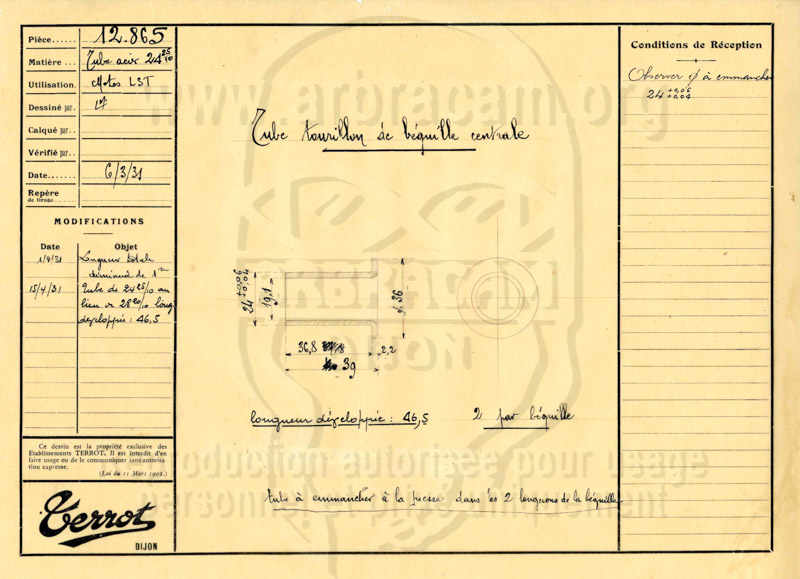 Pièce...... 12.865
Matière... Tube acier 24 25/10
Utilisation. Motos LST
Dessiné par.
Calqué par..
Vérifié par..
Date....... 6/3/31
Repère
de tirage
MODIFICATIONS
Date Objet
1/4/31 Longueur totale
diminuée de 1 m
15/4/31 tube de 24 25/10 au
lieu de 28 20/10 long
développée : 46,5
Ce dessin est la propriété exclusive des
Etablissements TERROT. Il est interdit d'en
faire usage ou de le communiquer sans autorisa-
tion expresse.
(Loi du 11 Mars 1902.)
Terrot
DIJON
Tube tourillon de béquille centrale
24 +0,06 +0,04
19,1
36
36,8
2,2
39
longueur développée : 46,5
2 par béquille
tube à emmancher à la presse dans les 2 longerons de la béquille
Conditions de Réception
Observer ø à emmancher
24 +0,06 +0,04
www.arbracam.org
ARBRACAM
DIJON
reproduction autorisée pour usage
personnel et privé uniquement